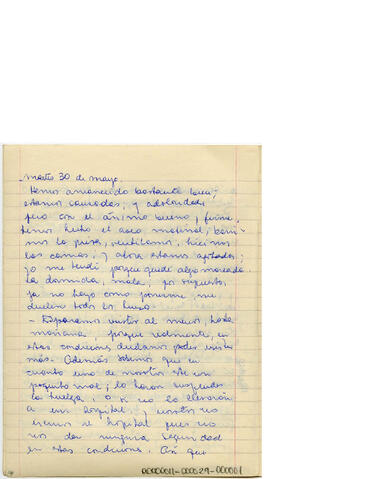 martes 30 de mayo.
Hemos amanecido bastante bien;
estamos cansados; y adoloridos
pero con el ánimo bueno, firme,
hemos hecho el aseo matinal, barri-
mos la pieza, ventilamos, hicimos
las camas, y ahora estamos acostados;
yo me tendí porque quedé algo mareada
la dormida, mala; por supuesto,
ya no hayo como ponerme me
duelen todos los huesos
- Esperamos resistir al menos, hasta
mañana, porque realmente, en
estas condiciones dudamos poder resistir
más. Además sabemos que en
cuanto uno de nosotros esté un
poquito mal; lo harán suspender
la huelga, o si no lo llevarán
a un hospital. y nosotros no
iremos al hospital pues no
nos da ninguna seguridad
en estas condiciones. Así que